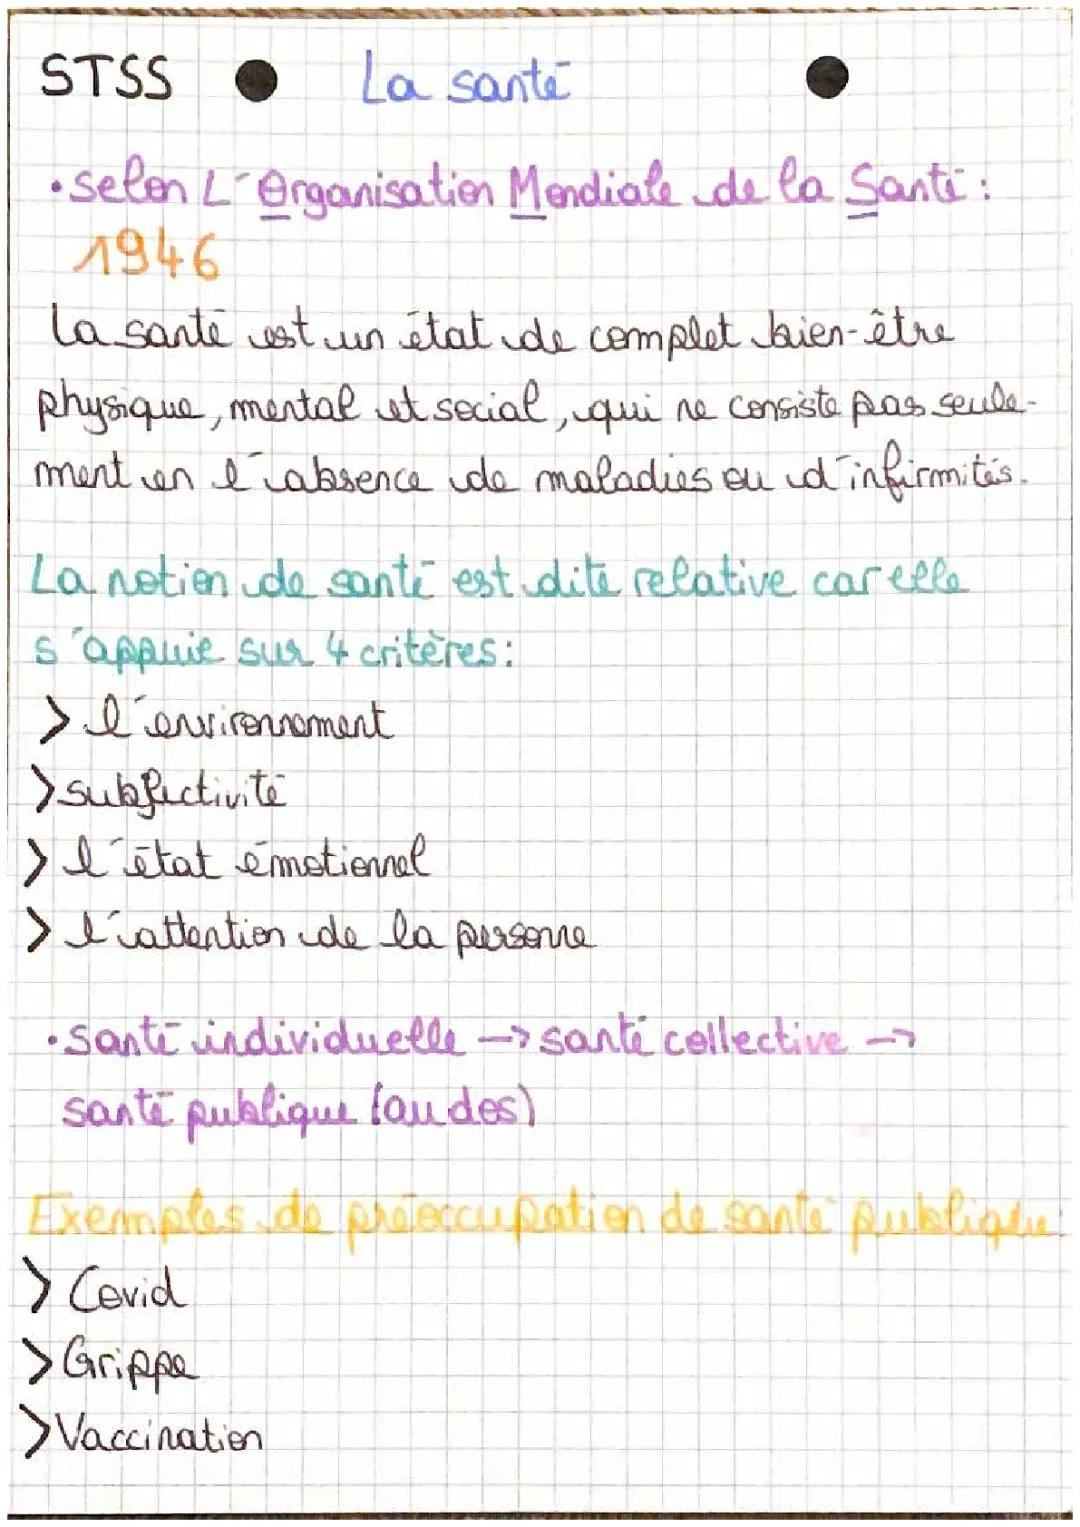 STSS La santé
• selon L'Organisation Mondiale de la Santé :
1946
La santé est un état de complet bien-être
physique, mental et social, qui ne consiste pas seule-
ment en l'absence de maladies ou d'infirmités.
La notion de santé est dite relative car elle
s'appuie sur 4 critères :
> l'environnement
> subjectivité
> l'état émotionnel
> l'attention de la personne
• santé individuelle -> santé collective ->
santé publique (au des)
Exemples de préoccupation de santé publique :
> Covid
> Grippe
> Vaccination